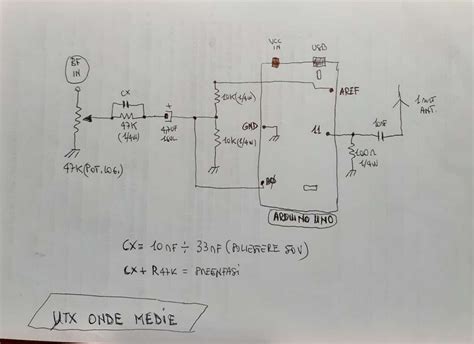 BF
IN
VCC
IN
USB
CX
+
10K (1/4W)
AREF
1 MT
ANT.
47K
(1/4W)
47µF
16V
GND
11
10nF
10K (1/4W)
100Ω
1/4W
47K (POT. LOG.)
ARDUINO UNO
CX = 10nF ÷ 33nF (POLIESTERE 50V)
CX + R47K = PREENFASI
µTX ONDE MEDIE